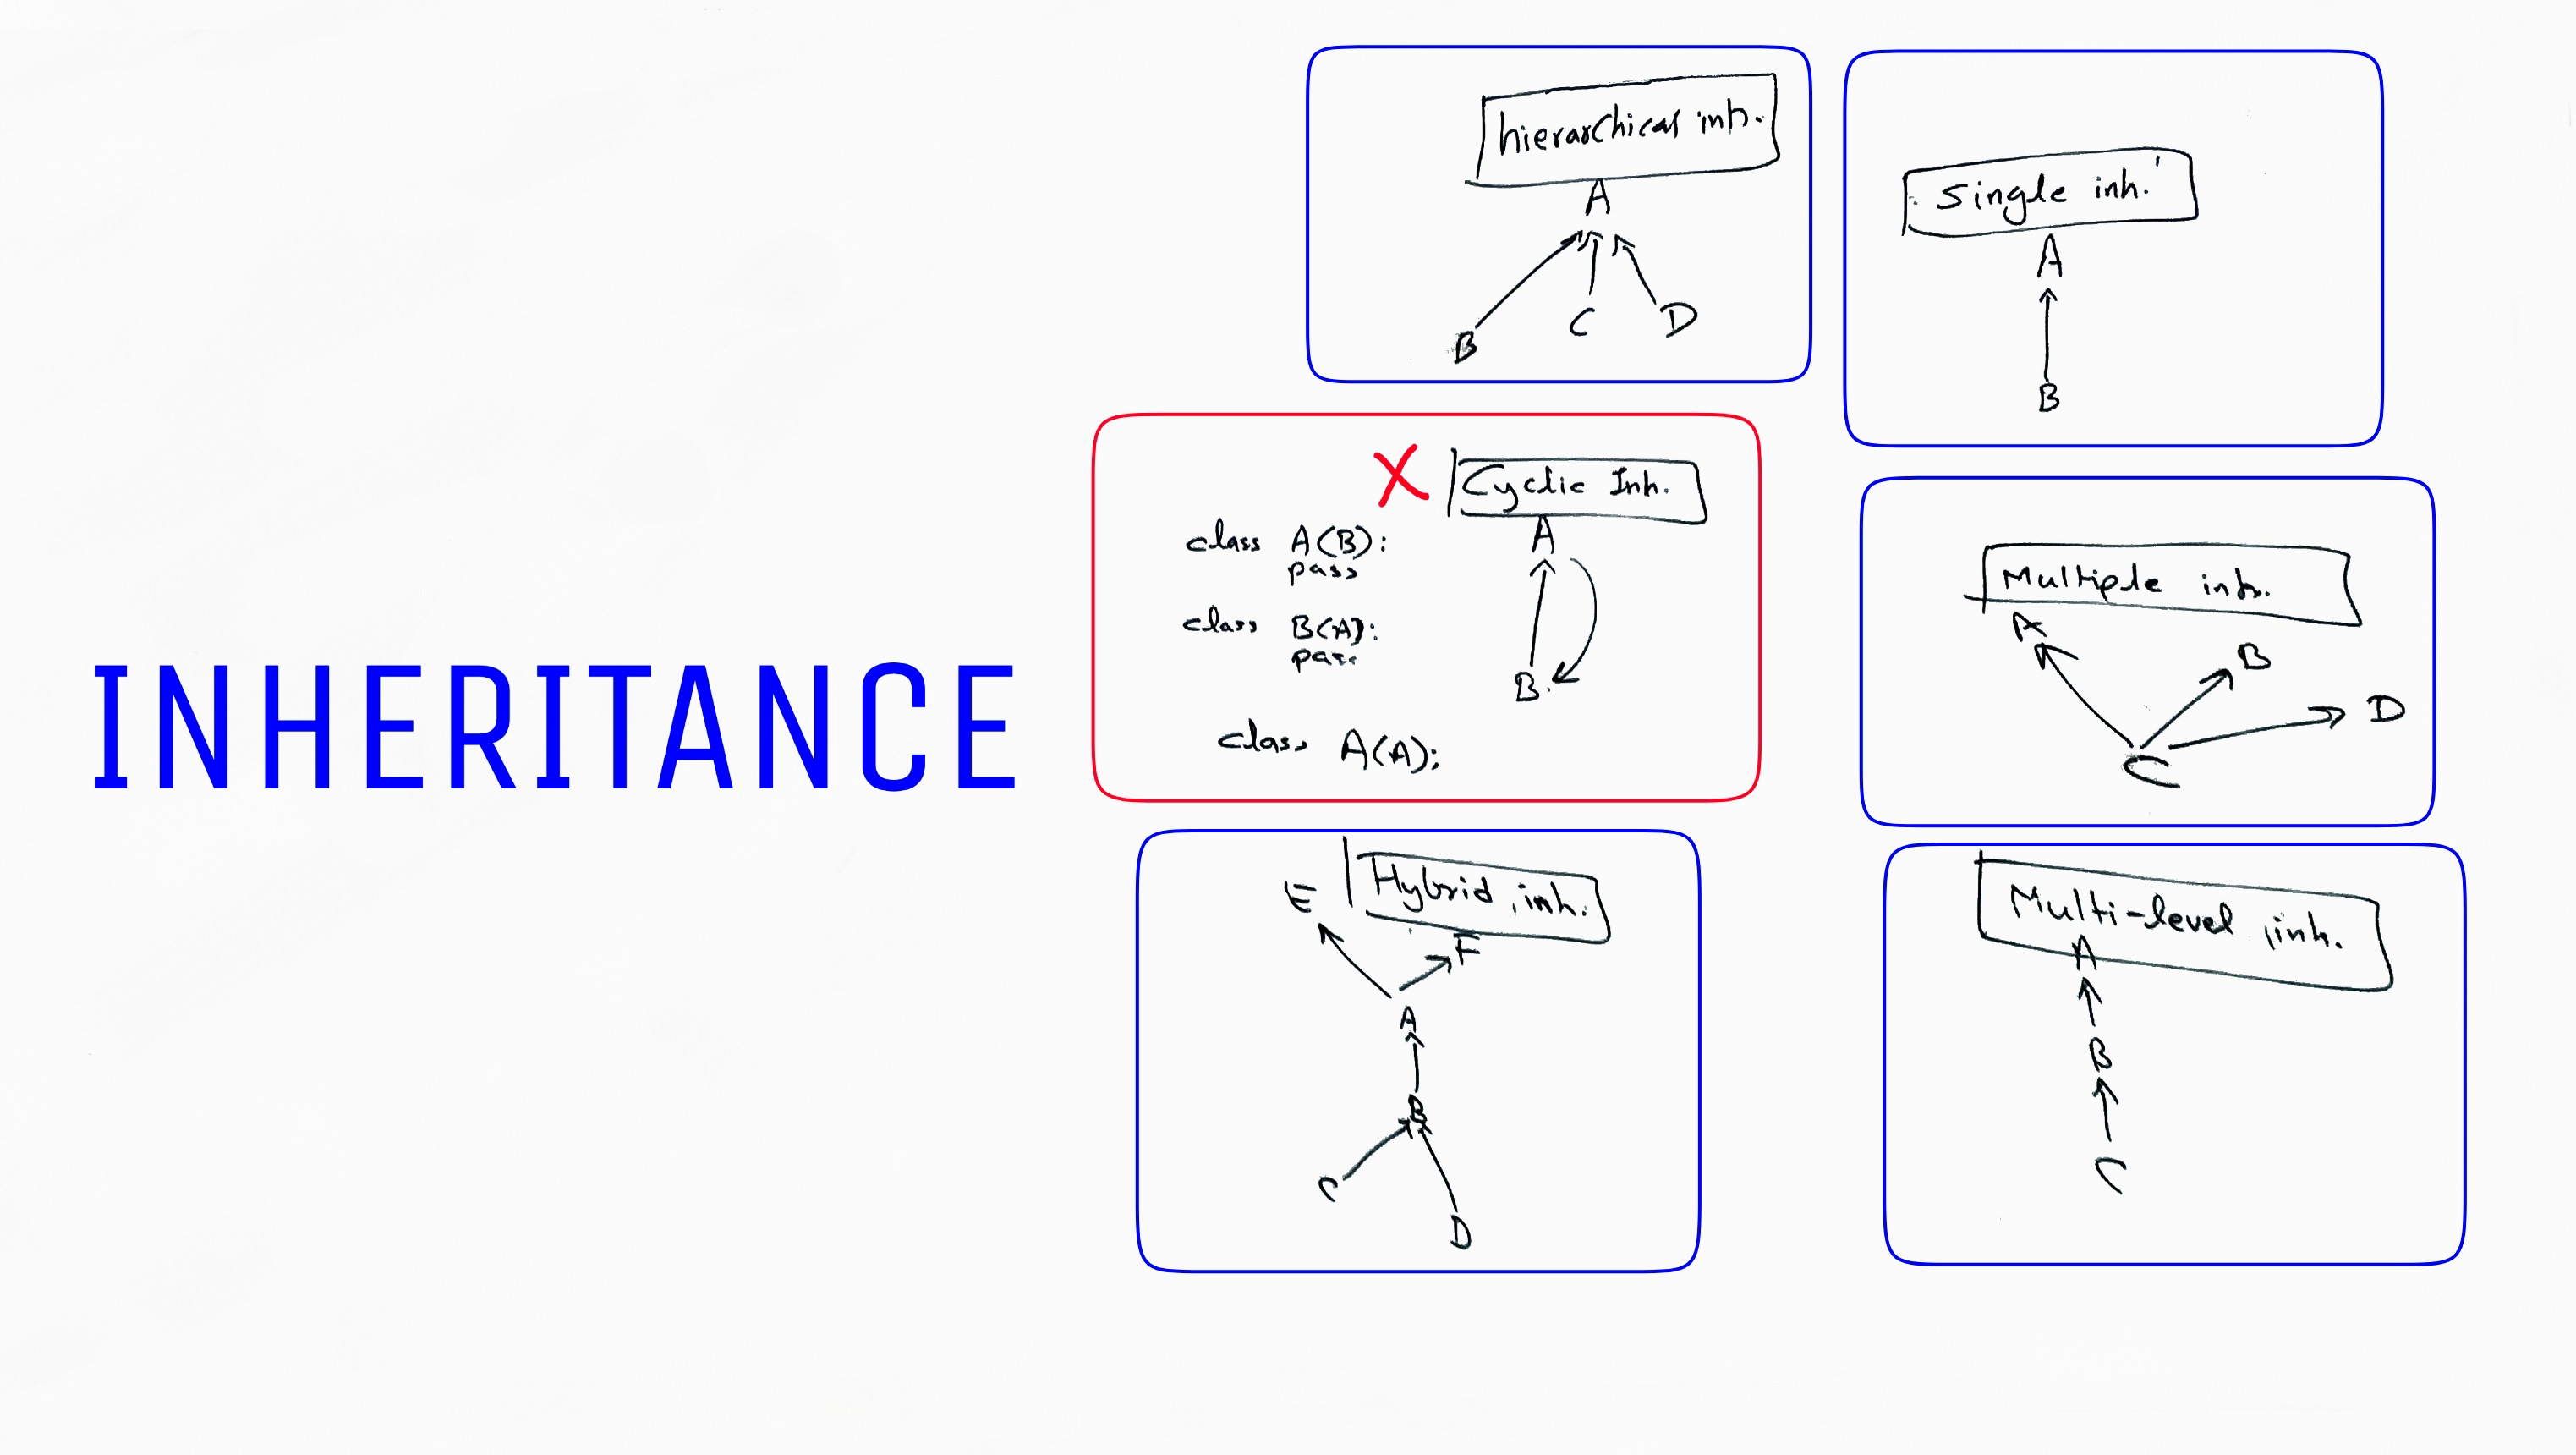 INHERITANCE
hierarchical inh.
A
B
C
D
Single inh.
A
B
X
Cyclic Inh.
class A(B):
pass
class B(A):
pass
class A(A):
A
B
Multiple inh.
A
B
D
C
Hybrid inh.
E
F
A
B
C
D
Multi-level inh.
A
B
C